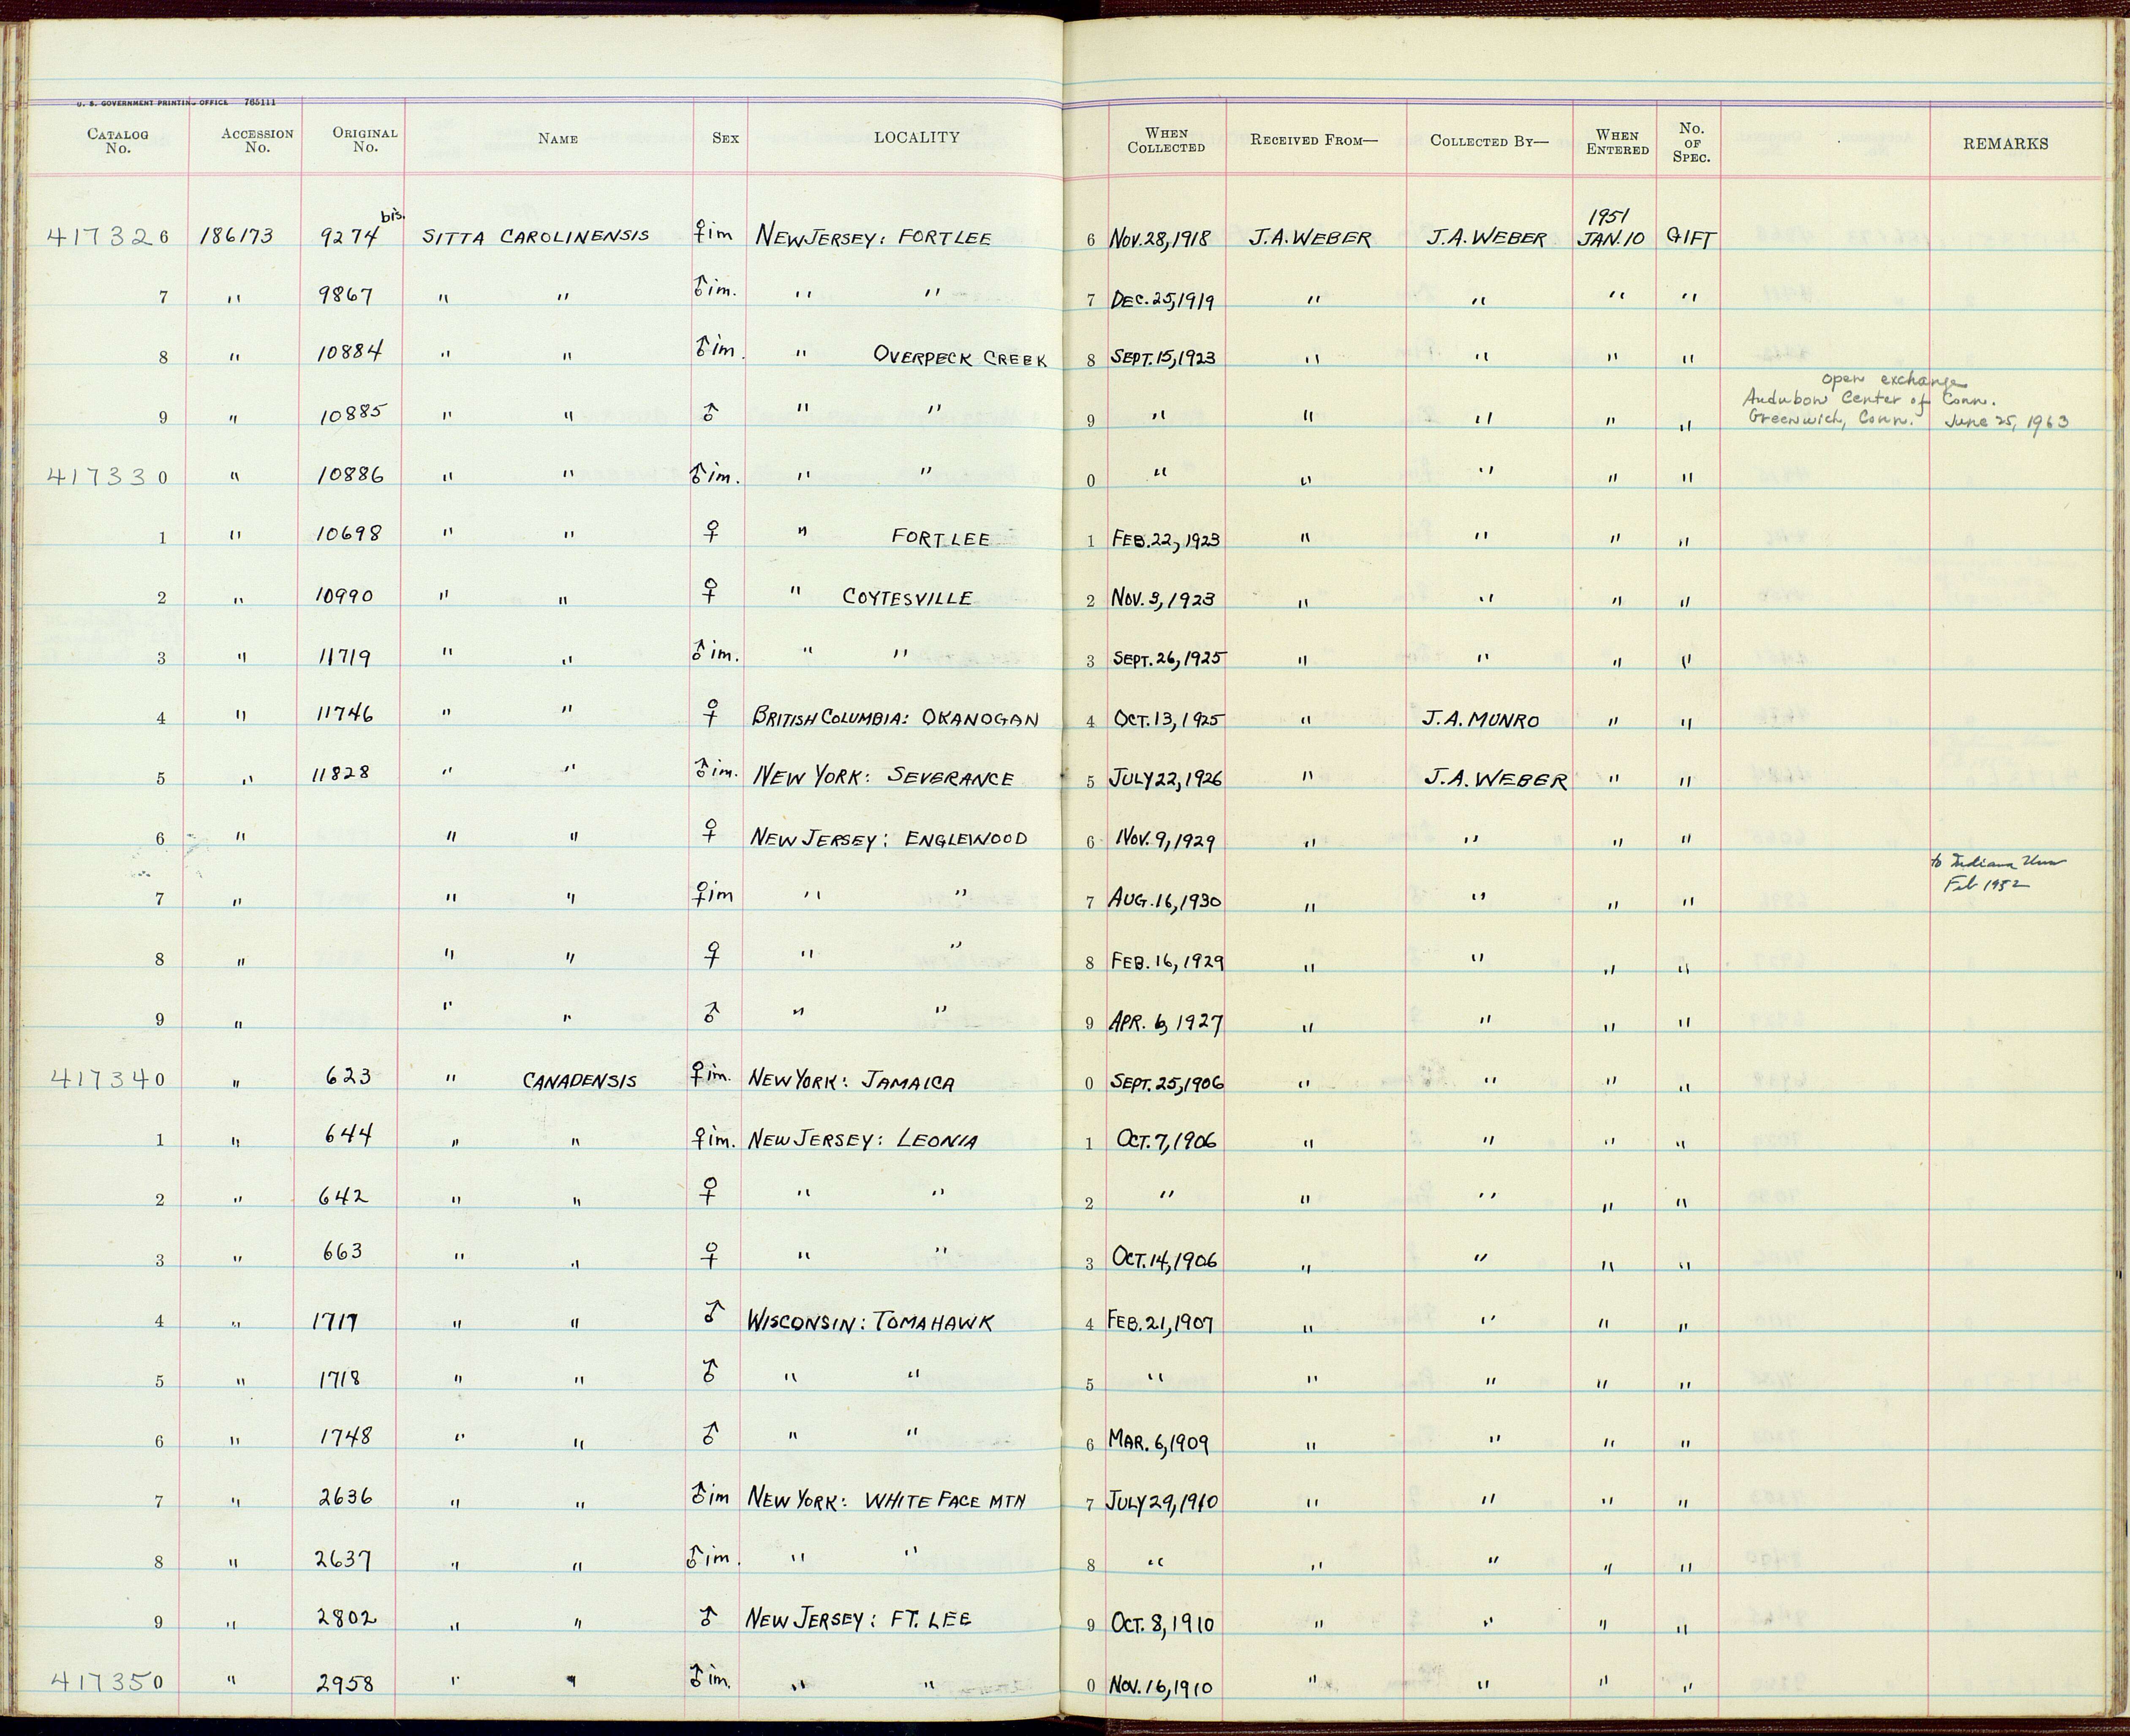 U. S. GOVERNMENT PRINTING OFFICE 765111
CATALOG No. ACCESSION No. ORIGINAL No. NAME SEX LOCALITY WHEN COLLECTED RECEIVED FROM— COLLECTED BY— WHEN ENTERED No. OF SPEC. REMARKS
417326 186173 9274 bis. SITTA CAROLINENSIS ♀im NEW JERSEY: FORT LEE 6 NOV. 28, 1918 J.A. WEBER J.A. WEBER 1951 JAN. 10 GIFT
7 " 9867 " " ♂im. " " 7 DEC. 25, 1919 " " " "
8 " 10884 " " ♂im. " OVERPECK CREEK 8 SEPT. 15, 1923 " " " "
9 " 10885 " " ♂ " " 9 " " " " " open exchange Audubon Center of Conn. Greenwich, Conn. June 25, 1963
417330 " 10886 " " ♂im. " " 0 " " " " "
1 " 10698 " " ♀ " FORT LEE 1 FEB. 22, 1923 " " " "
2 " 10990 " " ♀ " COYTESVILLE 2 NOV. 3, 1923 " " " "
3 " 11719 " " ♂im. " " 3 SEPT. 26, 1925 " " " "
4 " 11746 " " ♀ BRITISH COLUMBIA: OKANOGAN 4 OCT. 13, 1925 " J.A. MUNRO " "
5 " 11828 " " ♂im. NEW YORK: SEVERANCE 5 JULY 22, 1926 " J.A. WEBER " "
6 " " " ♀ NEW JERSEY: ENGLEWOOD 6 NOV. 9, 1929 " " " "
7 " " " ♀im " " 7 AUG. 16, 1930 " " " " to Indiana Univ Feb 1952
8 " " " ♀ " " 8 FEB. 16, 1929 " " " "
9 " " " ♂ " " 9 APR. 6, 1927 " " " "
417340 " 623 " CANADENSIS ♀im. NEW YORK: JAMAICA 0 SEPT. 25, 1906 " " " "
1 " 644 " " ♀im. NEW JERSEY: LEONIA 1 OCT. 7, 1906 " " " "
2 " 642 " " ♀ " " 2 " " " " "
3 " 663 " " ♀ " " 3 OCT. 14, 1906 " " " "
4 " 1717 " " ♂ WISCONSIN: TOMAHAWK 4 FEB. 21, 1907 " " " "
5 " 1718 " " ♂ " " 5 " " " " "
6 " 1748 " " ♂ " " 6 MAR. 6, 1909 " " " "
7 " 2636 " " ♂im NEW YORK: WHITE FACE MTN 7 JULY 29, 1910 " " " "
8 " 2637 " " ♂im. " " 8 " " " " "
9 " 2802 " " ♂ NEW JERSEY: FT. LEE 9 OCT. 8, 1910 " " " "
417350 " 2958 " " ♂im. " " 0 NOV. 16, 1910 " " " "